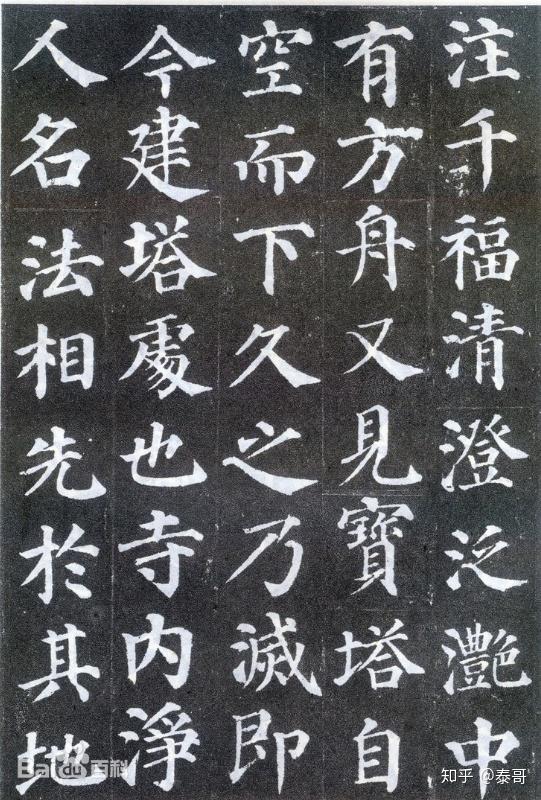 注千福清澄泛灔中
有方舟又見寶塔自
空而下久之乃滅即
今建塔處也寺内淨
人名法相先於其地
Baidu百科
知乎 @泰哥